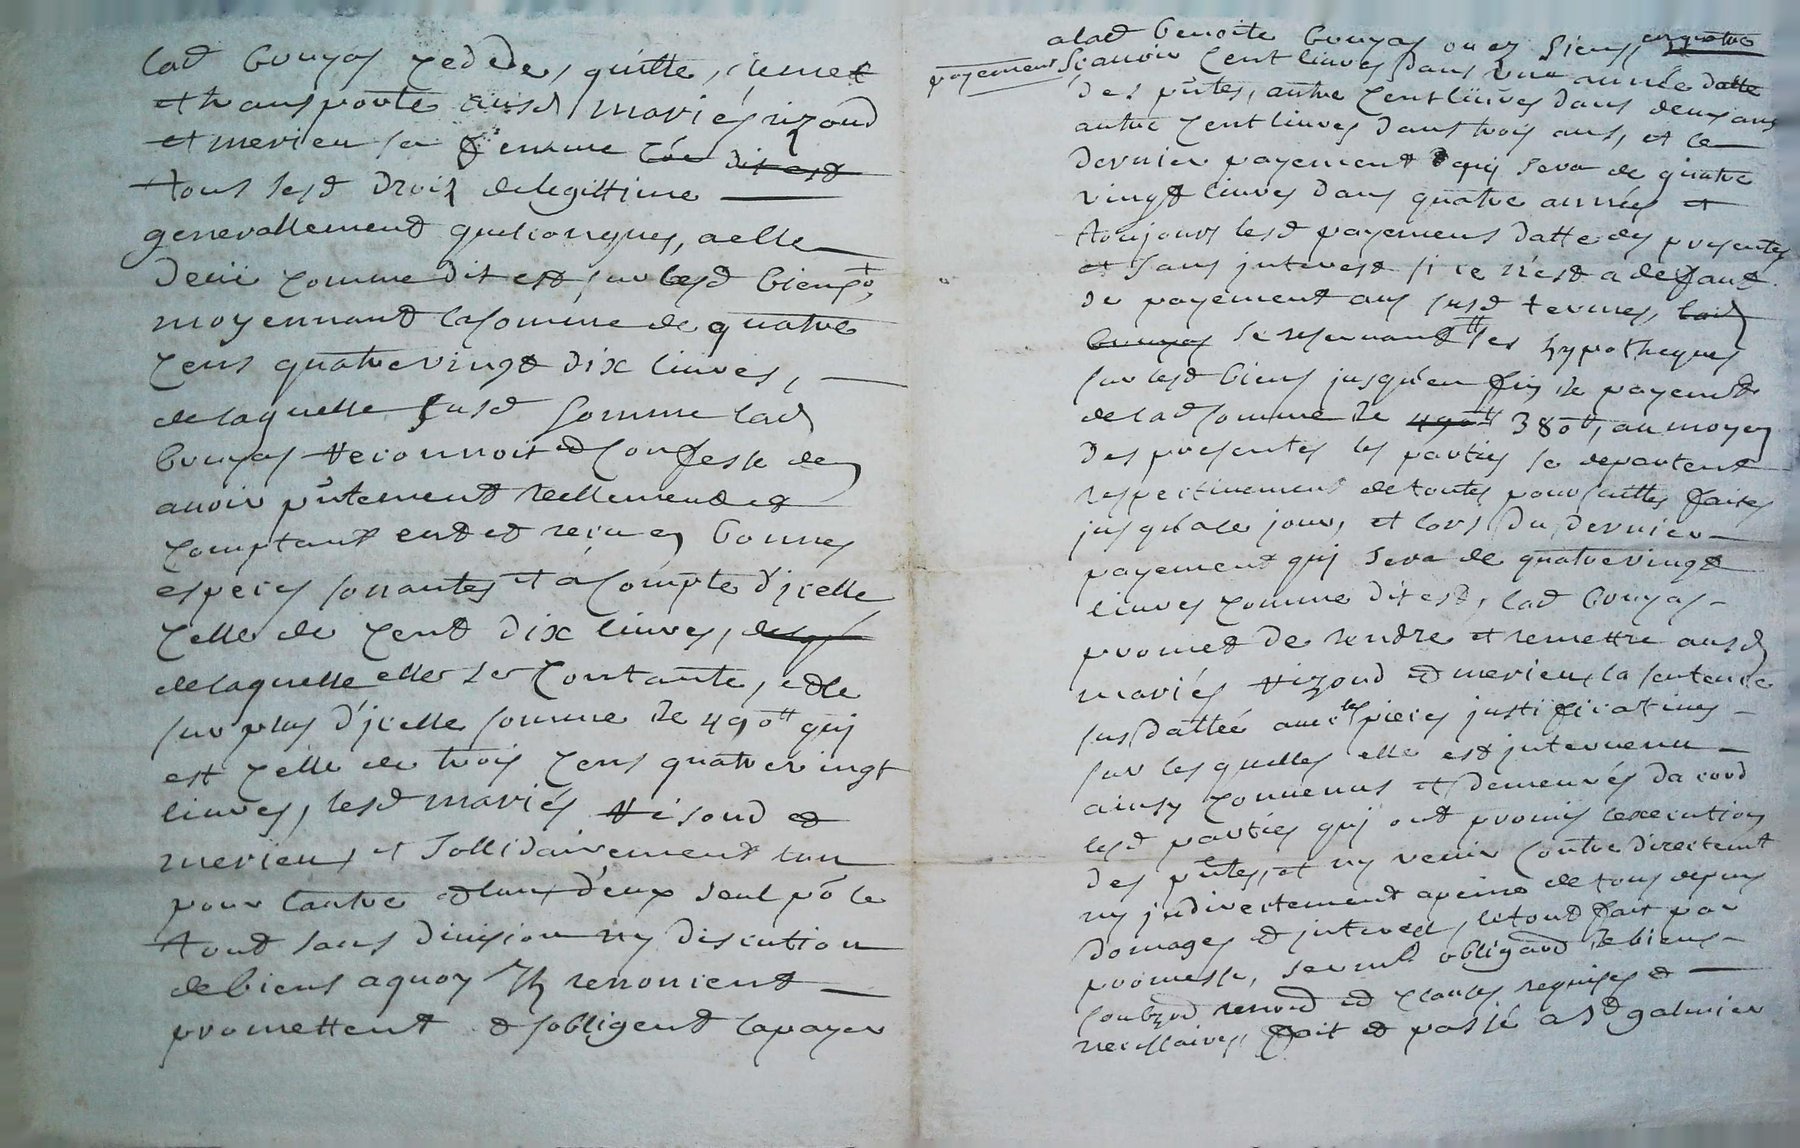 lad bouyas cedde, quitte, remet
et transporte ausd mariés rizoud
et merieu sa femme
tous sesd droiz de legittime
generallement quelconques, a elle
deüe comme dit est sur lesd biens
moyennant la somme de quatre
cens quatre vingt dix livres,
de laquelle susd somme lad
bouyas reconnoit et confesse den
avoir pñtement reellement et
comptant eut et reçu en bonnes
especes sonnantes et a compte d'jcelle
celle de cent dix livres,
de laquelle elle se contante, et le
surplus d'jcelle somme de 490tt quj
est celle de trois cens quatre vingt
livres, lesd mariés risoud et
merieu, et sollidairement l'un
pour lautre et lun d'eux seul po le
tout sans division ny discution
de biens a quoy ilz renoncent
promettent et sobligent la payer
a lad benoite bouyas ou ez siens, en quatre
payement sçauoir cent livres dans une année datte
des pñtes, autre cent livres dans deux ans
autre cent livres dans trois ans, et le
dernier payement quj sera de quatre
vingt livres dans quatre années et
toujours lesd payemens datte des presentes
et sans jnterest si ce n'est a defaut
de payement aux susd termes, lad
bouyas se reservant les hypotheques
sur lesd biens jusqu'en fin de payemt
de lad somme de 490tt 380tt, au moyen
des presentes les parties se departent
respectivement de toutes poursuittes faites
jusqu'a ce jour, et lors du dernier
payement quj sera de quatre vingt
livres comme dit est, lad bouyas
promet de rendre et remettre ausd
mariés rizoud et merieu, la sentence
sus dattée avec les pieces justificatives
sur lesquelles elle est jntervenu
ainsy convenus et demeurés dacord
lesd parties quj ont promis lexecution
des pñtes, et ny venir contre directemt
ny jndirectement a peine de tous depens
domages et jnterest, le tout fait par
promesse, sermt obligaon de biens
soubzon renond et clauses requises et
necessaires, fait et passé a St galmier